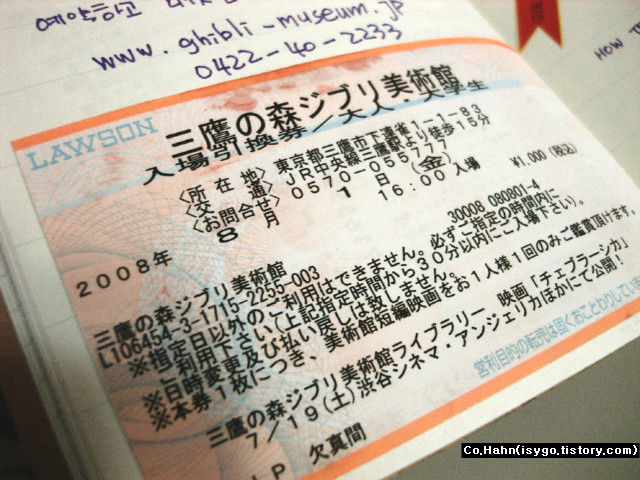 예약하고
www.ghibli-museum.jp
0422-40-2233
HOW T
LAWSON
三鷹の森ジブリ美術館
入場引換券/大人・大学生
〈所在地〉東京都三鷹市下連雀1-1-83
〈交通〉JR中央線三鷹駅より徒歩15分
〈お問合せ〉0570-055777
2008年 8月 1日(金) 16:00入場 ¥1,000(税込)
30008 080801-4
三鷹の森ジブリ美術館
L106454-3-1715-2255-003
※指定日以外のご利用はできません。必ずご指定の時間内に
ご利用下さい(上記指定時間から30分以内にご入場下さい)。
※日時変更及び払い戻しは致しません。
※本券1枚につき、美術館短編映画をお1人様1回のみご鑑賞頂けます
三鷹の森ジブリ美術館ライブラリー 映画「チェブラーシカ」
7/19(土)渋谷シネマ・アンジェリカほかにて公開!
LP 欠真間
営利目的の転売は固くおことわりしていま
Co.Hahn(isygo.tistory.com)